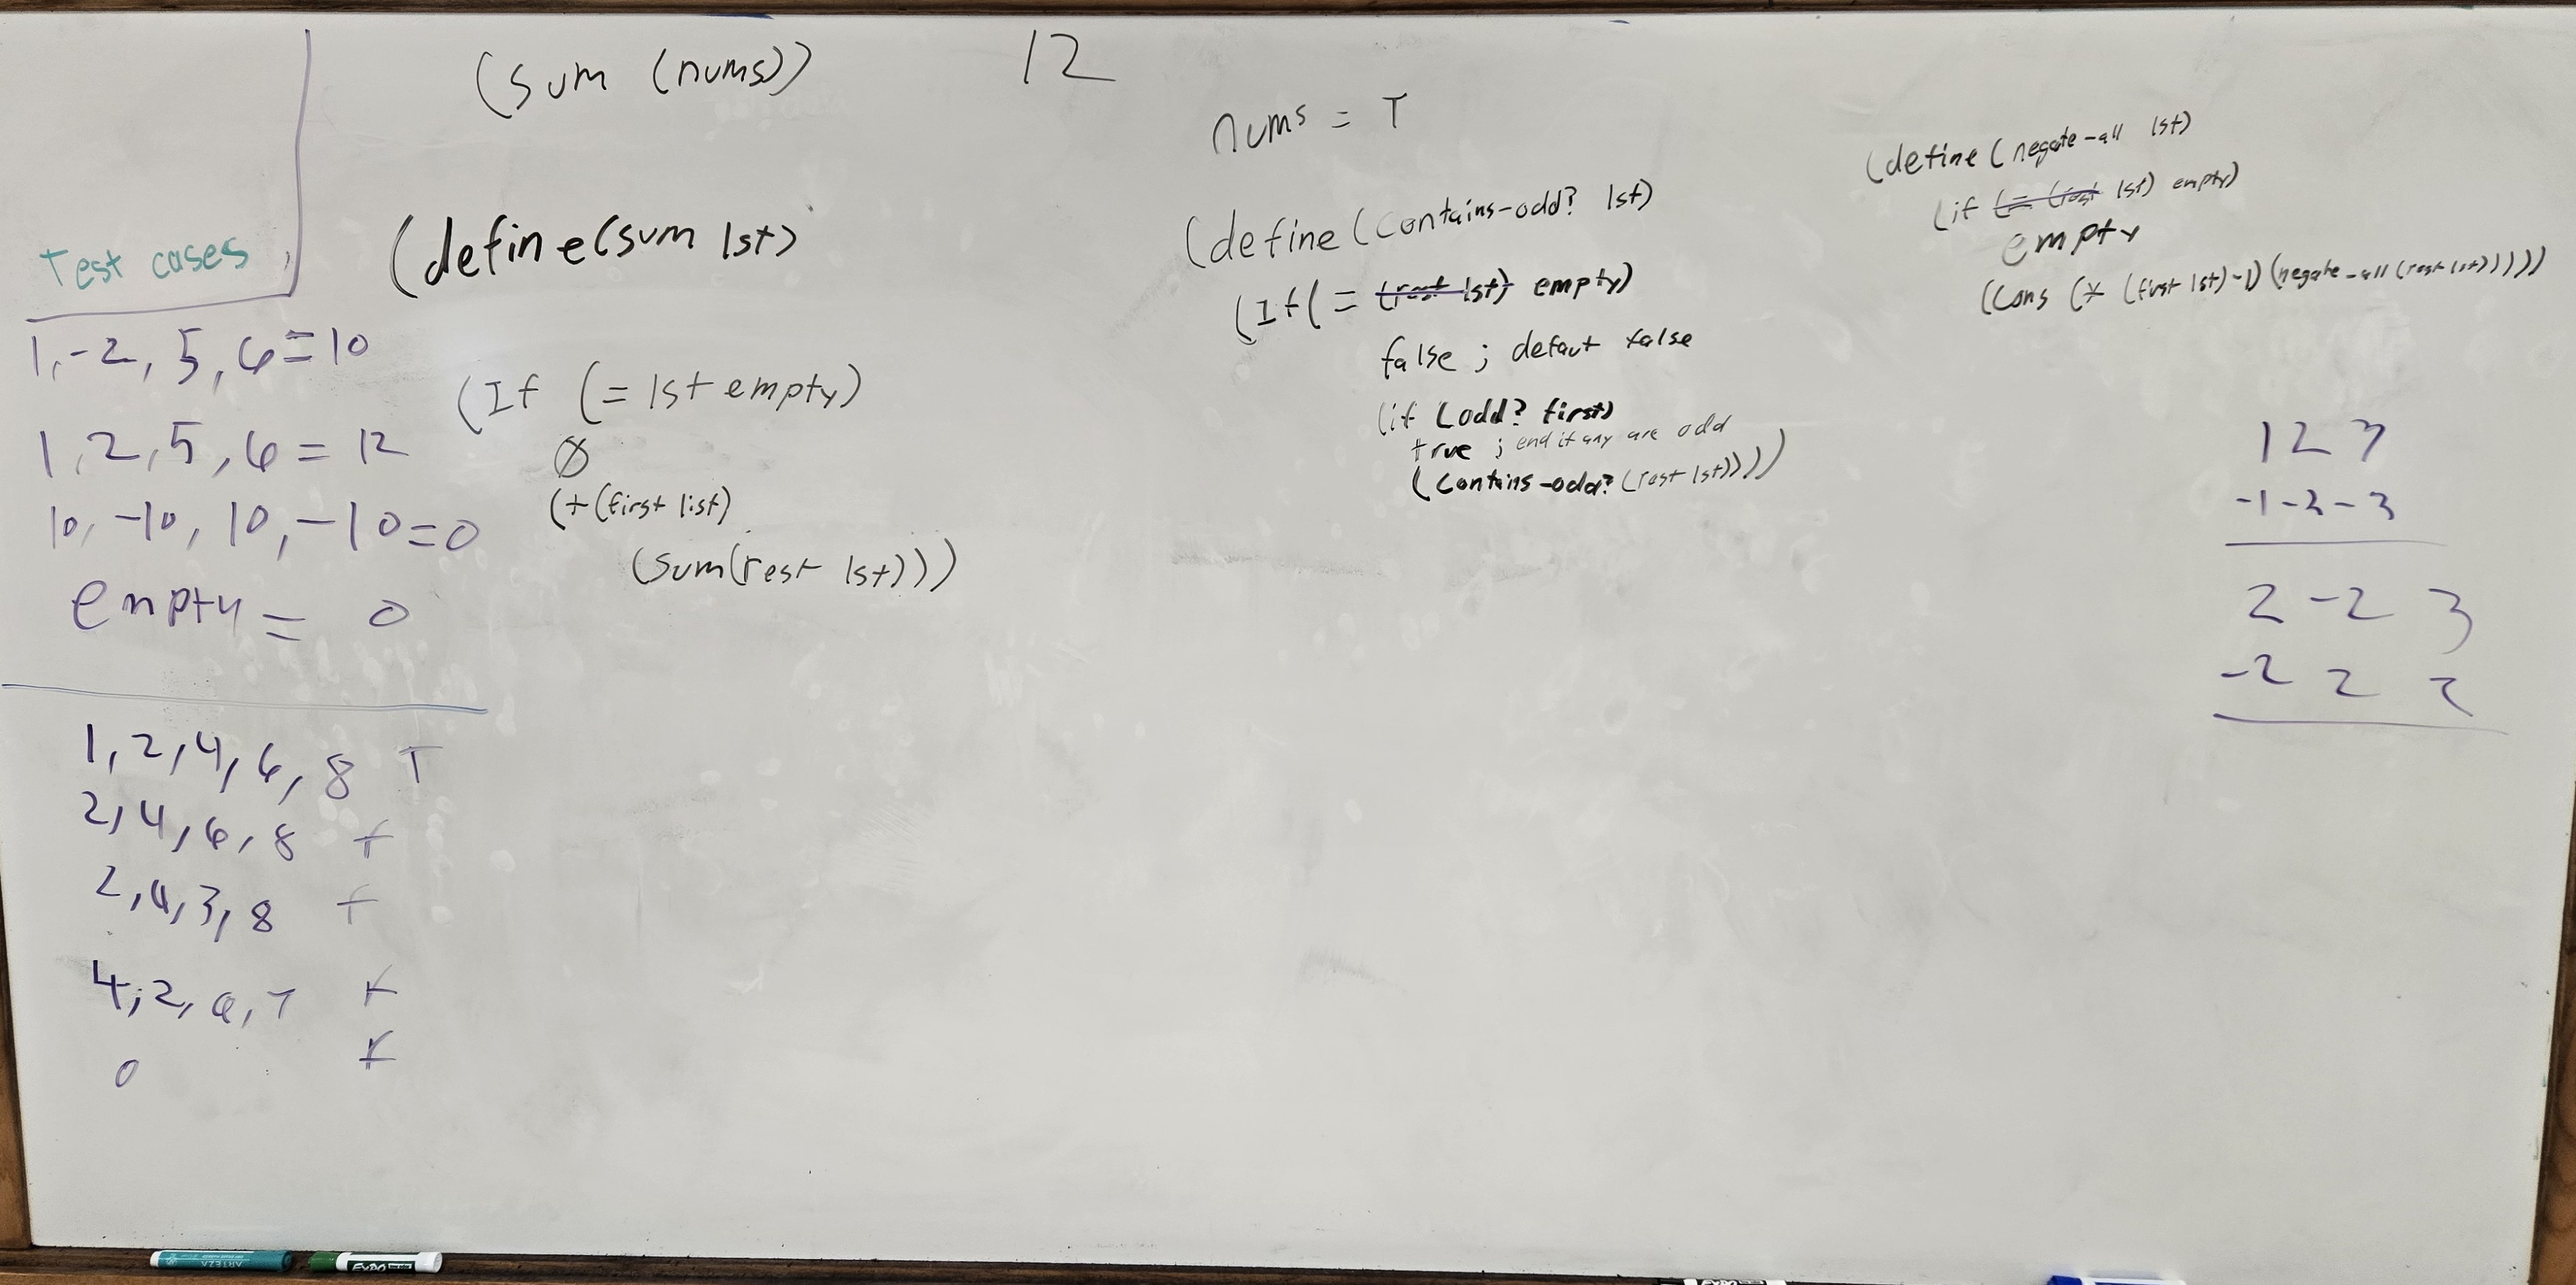 Test cases
1, -2, 5, 6 = 10
1, 2, 5, 6 = 12
10, -10, 10, -10 = 0
empty = 0
1, 2, 4, 6, 8 T
2, 4, 6, 8 f
2, 4, 3, 8
4, 2, 6, 7
0
(sum (nums)) 12
(define(sum lst)
(If (= lst empty)
0
(+(first list)
(sum(rest lst)))
nums = T
(define (contains-odd? lst)
(If (= (rest lst) empty)
false ; defaut false
(if (odd? first)
true ; end if any are odd
(contains-odd? (rest lst))))
(define (negate-all lst)
(if (= (rest lst) empty)
empty
(cons (* (first lst) -1) (negate-all (rest lst)))))
1 2 3
-1 -2 -3
2 -2 3
-2 2